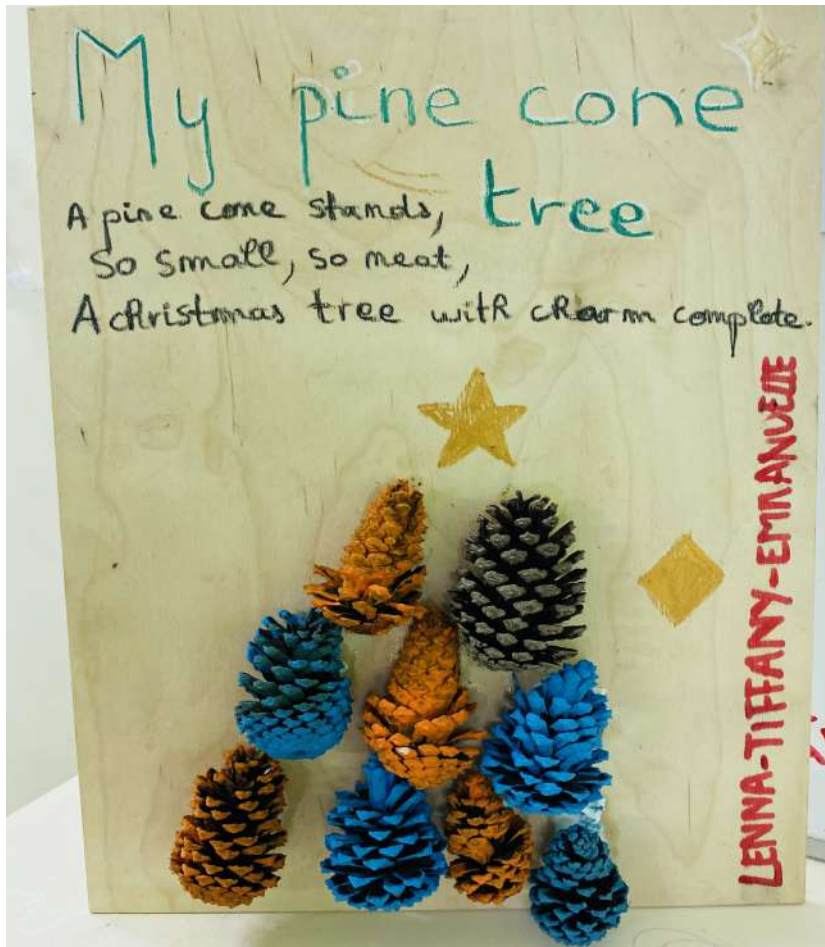 My pine cone
tree
A pine cone stands,
so small, so neat,
A christmas tree with charm complete.
LENNA-TIFFANY-EMMANUELLE